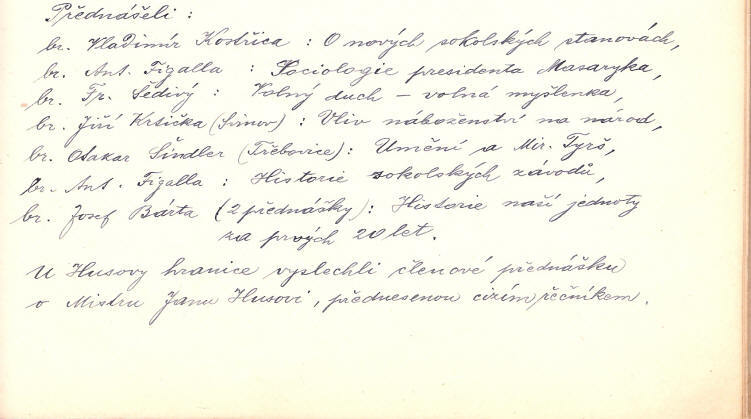 Přednášeli :
br. Vladimír Kostřica : O nových sokolských stanovách,
br. Ant. Figalla : Sociologie presidenta Masaryka,
br. Fr. Šedivý : Volný duch – volná myšlenka,
br. Jiří Krsička (Svinov) : Vliv náboženství na národ,
br. Otakar Šindler (Třebovice) : Umění a Mir. Tyrš,
br. Ant. Figalla : Historie sokolských závodů,
br. Josef Bárta (2 přednášky) : Historie naší jednoty
za prvých 20 let.
U Husovy hranice vyslechli členové přednášku
o Mistru Janu Husovi, přednesenou cizím řečníkem.